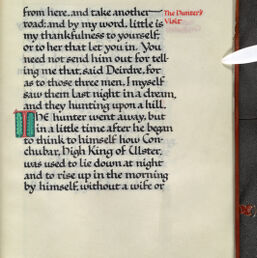 from here, and take another
road: and by my word, little is
my thankfulness to yourself,
or to her that let you in. You
need not send him out for tell-
ing me that, said Deirdre, for
as to those three men, I myself
saw them last night in a dream,
and they hunting upon a hill.
The hunter went away, but
in a little time after he began
to think to himself how Con-
chubar, High King of Ulster,
was used to lie down at night
and to rise up in the morning
by himself, without a wife or
The Hunter's
Visit